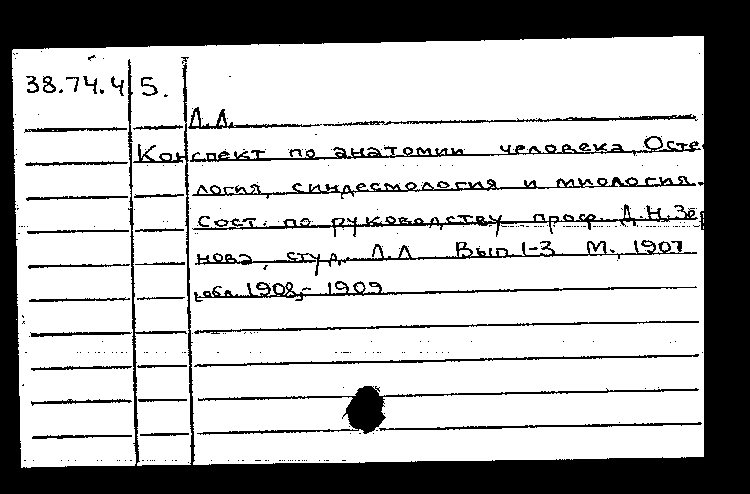 38.74.4 5.
Л.Л.
Конспект по анатомии человека, Осте
логия, синдесмология и миология.
Сост. по руководству проф. Д.Н.Зер
нова, студ. Л.Л Вып.1-3 М., 1907
обл. 1908,- 1909